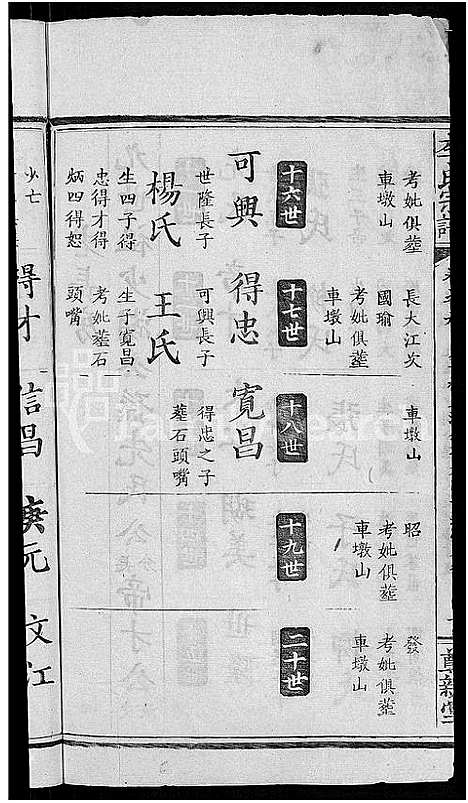 李氏宗譜
考妣俱葬
車墩山
十六世
可興
世隆長子
楊氏
生四子得
忠得才得
炳四得恕
長大江次
國瑜
考妣俱葬
車墩山
十七世
得忠
可興長子
王氏
生子寬昌
考妣葬石
頭嘴
車墩山
十八世
寬昌
得忠之子
葬石頭嘴
昭
考妣俱葬
車墩山
十九世
發
考妣俱葬
車墩山
二十世
少亡
得才
信昌
庚元
文江